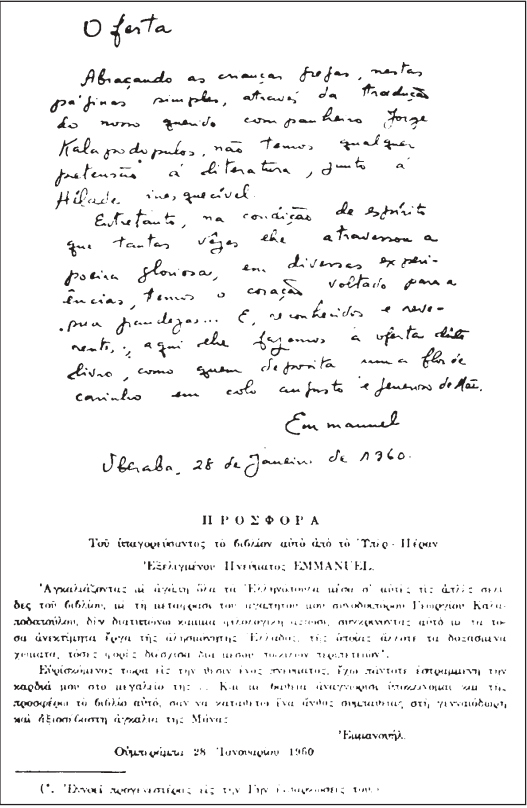 Oferta
Abraçando as crianças gregas, nestas
páginas simples, através da tradução
do nosso querido companheiro Jorge
Kalapodopulos, não temos qualquer
pretensão á literatura, junto á
Hélade inesquecível.
Entretanto, na condição de espírito
que tantas vêzes lhe atravessou a
poeira gloriosa, em diversas experi-
ências, temos o coração voltado para a
sua grandeza... E, reconhecidos e reve-
rentes, aqui lhe fazemos a oferta dêste
livro, como quem deposita uma flor de
carinho em colo augusto e generoso de Mãe.
Emmanuel
Uberaba, 28 de Janeiro de 1960.
ΠΡΟΣΦΟΡΑ
Τοῦ ὑπαγορεύσαντος τὸ βιβλίον αὐτὸ ἀπὸ τὸ Ὑπερ-Πέραν
Ἐξελιγμένου Πνεύματος EMMANUEL.
Ἀγκαλιάζοντας μὲ ἀγάπη ὅλα τὰ Ἑλληνόπουλα μέσα σ' αὐτὲς τὶς ἁπλὲς σελί-
δες τοῦ βιβλίου, μὲ τὴ μετάφρασι τοῦ ἀγαπητοῦ μου Γεωργίου Καλα-
ποδοπούλου, δὲν διατυπώνω καμμιὰ φιλολογικὴ συγκρίνοντας αὐτὸ μὲ τὰ τό-
σα ἀνεκτίμητα ἔργα τῆς Ἑλλάδος, τῆς ὁποίας ἄλλοτε τὰ δοξασμένα
χώματα, τόσες φορὲς διέσχισα διὰ μέσου
Εὑρισκόμενος τώρα εἰς τὴν θέσιν ἑνὸς πνεύματος, ἔχω πάντοτε ἐστραμμένη τὴν
καρδιά μου στὸ μεγαλεῖο της... Καὶ μὲ βαθειὰ ἀναγνώρισι ὑποκλίνομαι καὶ τῆς
προσφέρω τὸ βιβλίο αὐτό, σὰν νὰ καταθέτω ἕνα ἄνθος συμπαθείας στὴ γενναιόδωρη
καὶ ἀξιοσέβαστη ἀγκαλιὰ τῆς Μάνας
Ἐμμανουήλ.
Οὐμπεράμπα 28 Ἰανουαρίου 1960
Ἐννοεῖ εἰς τὴν Γῆν